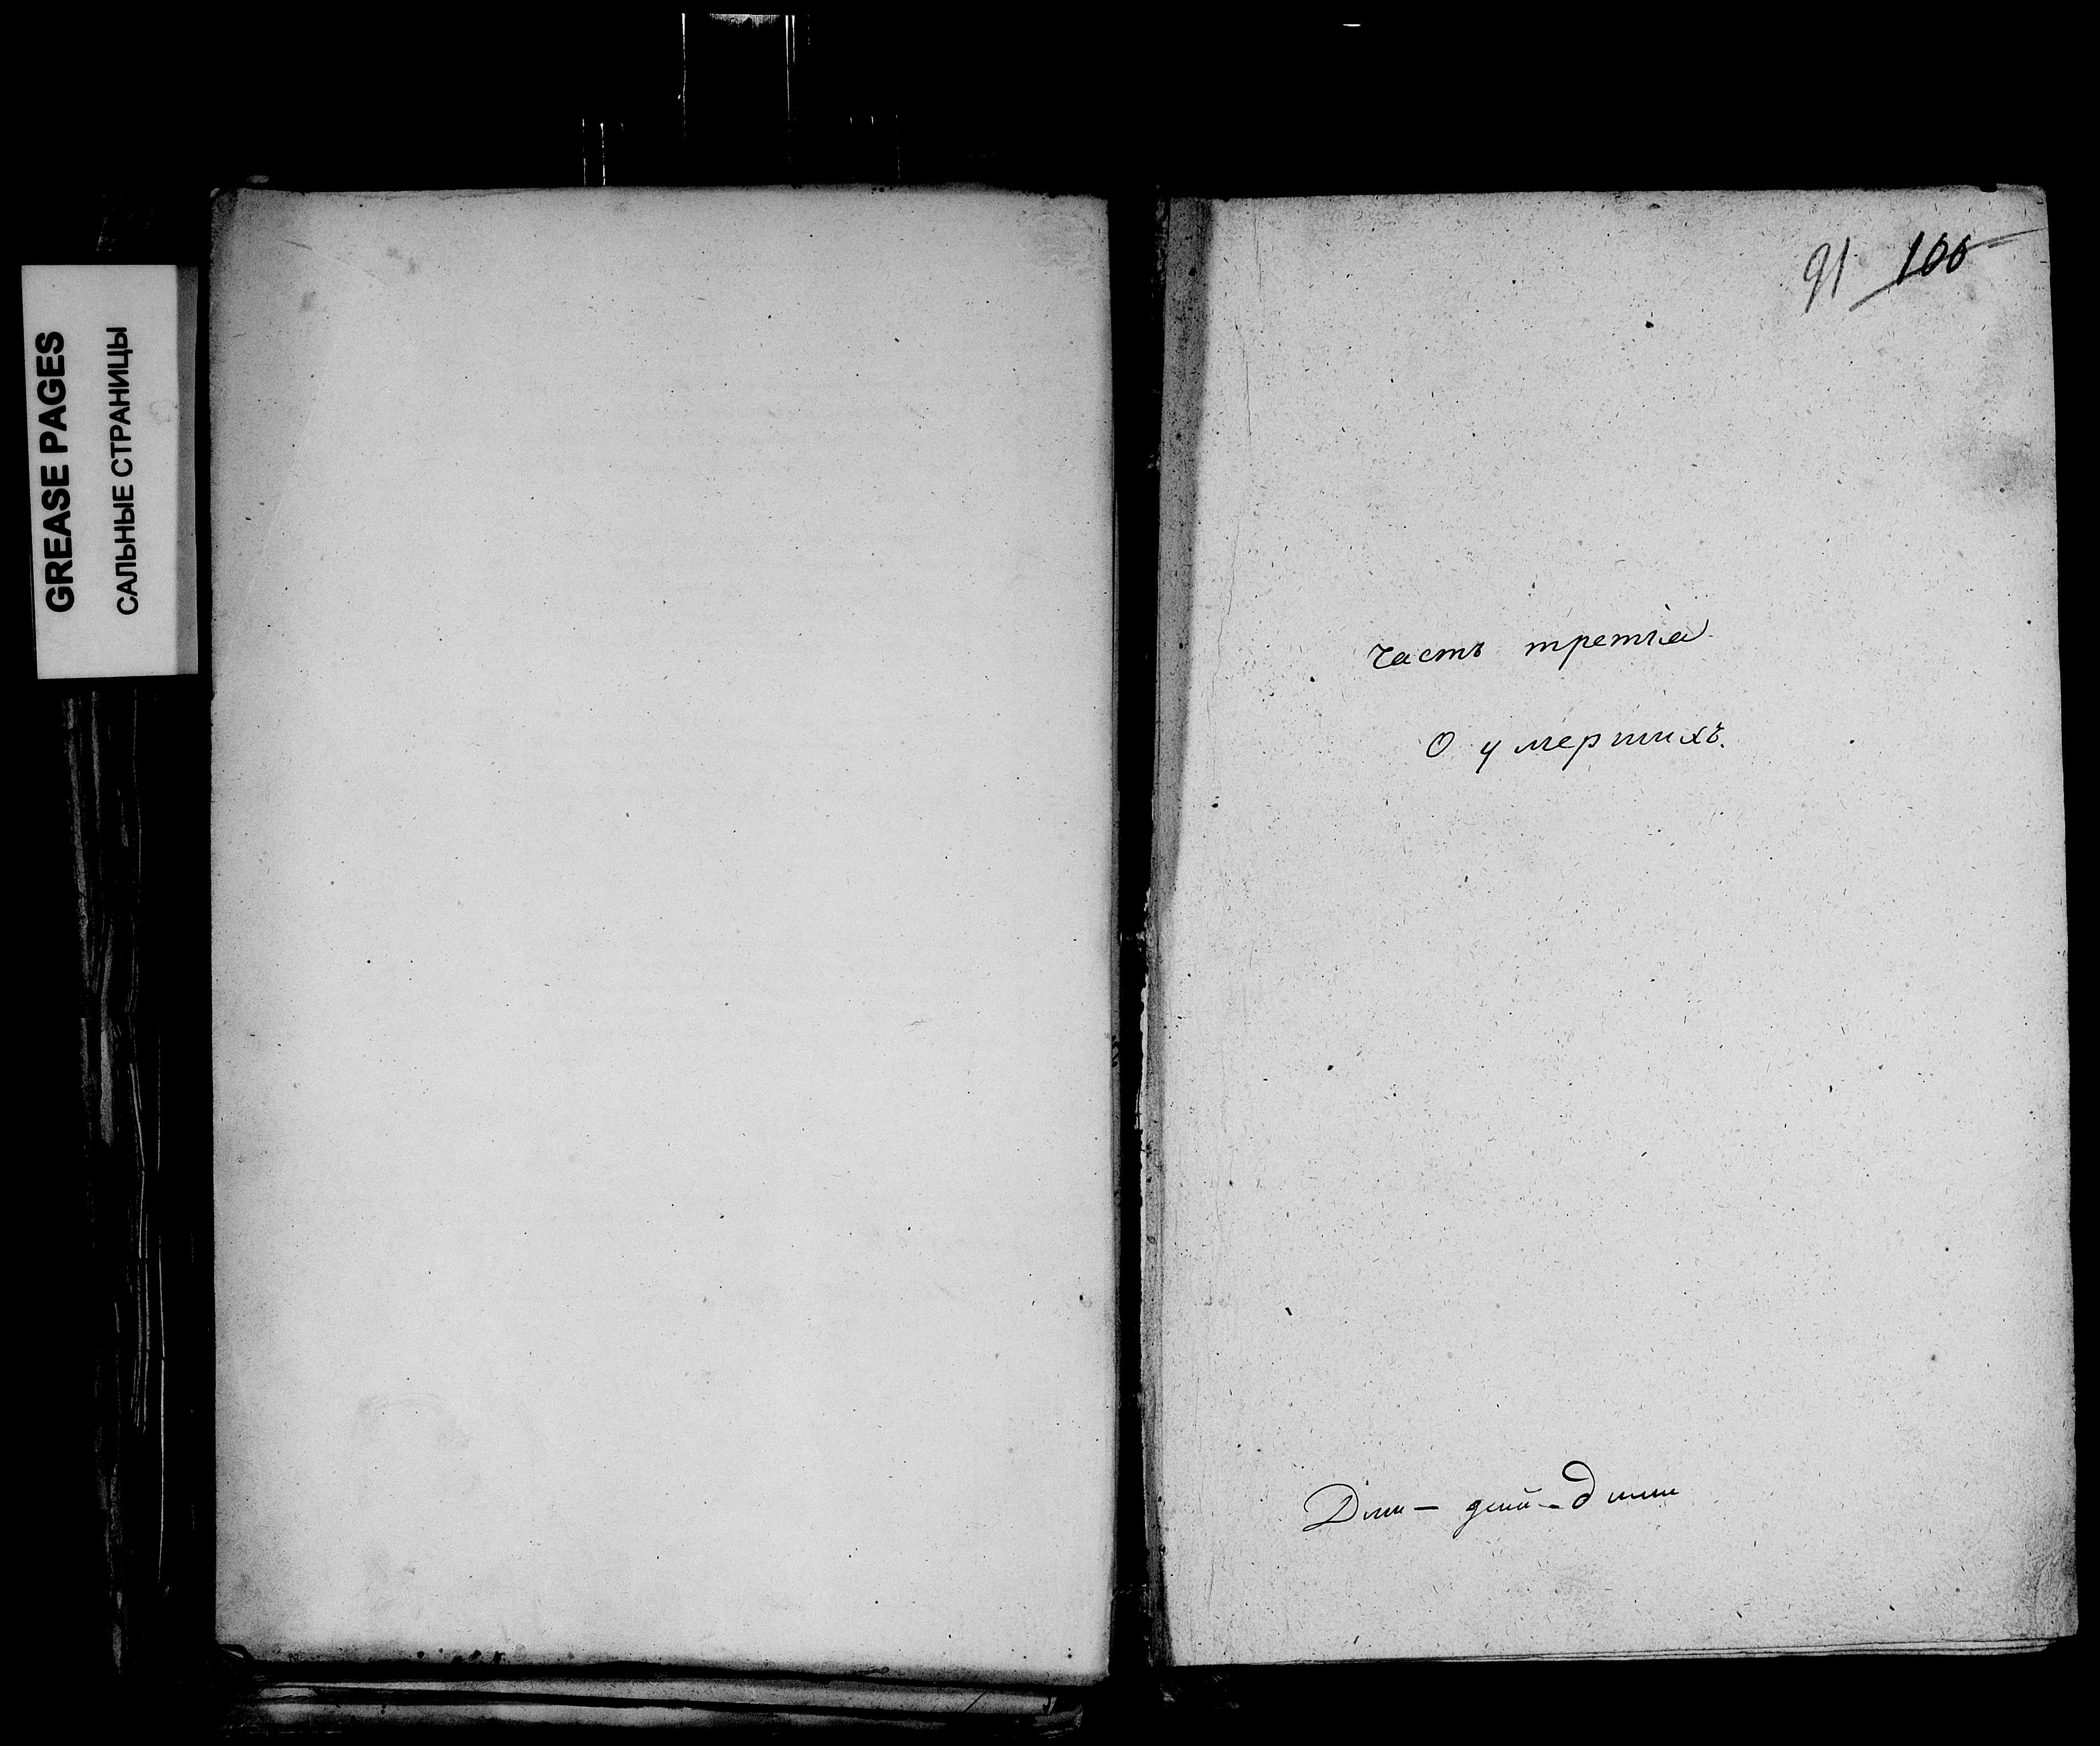 GREASE PAGES
САЛЬНЫЕ СТРАНИЦЫ
91 100
Часть третіа
О умершихъ.